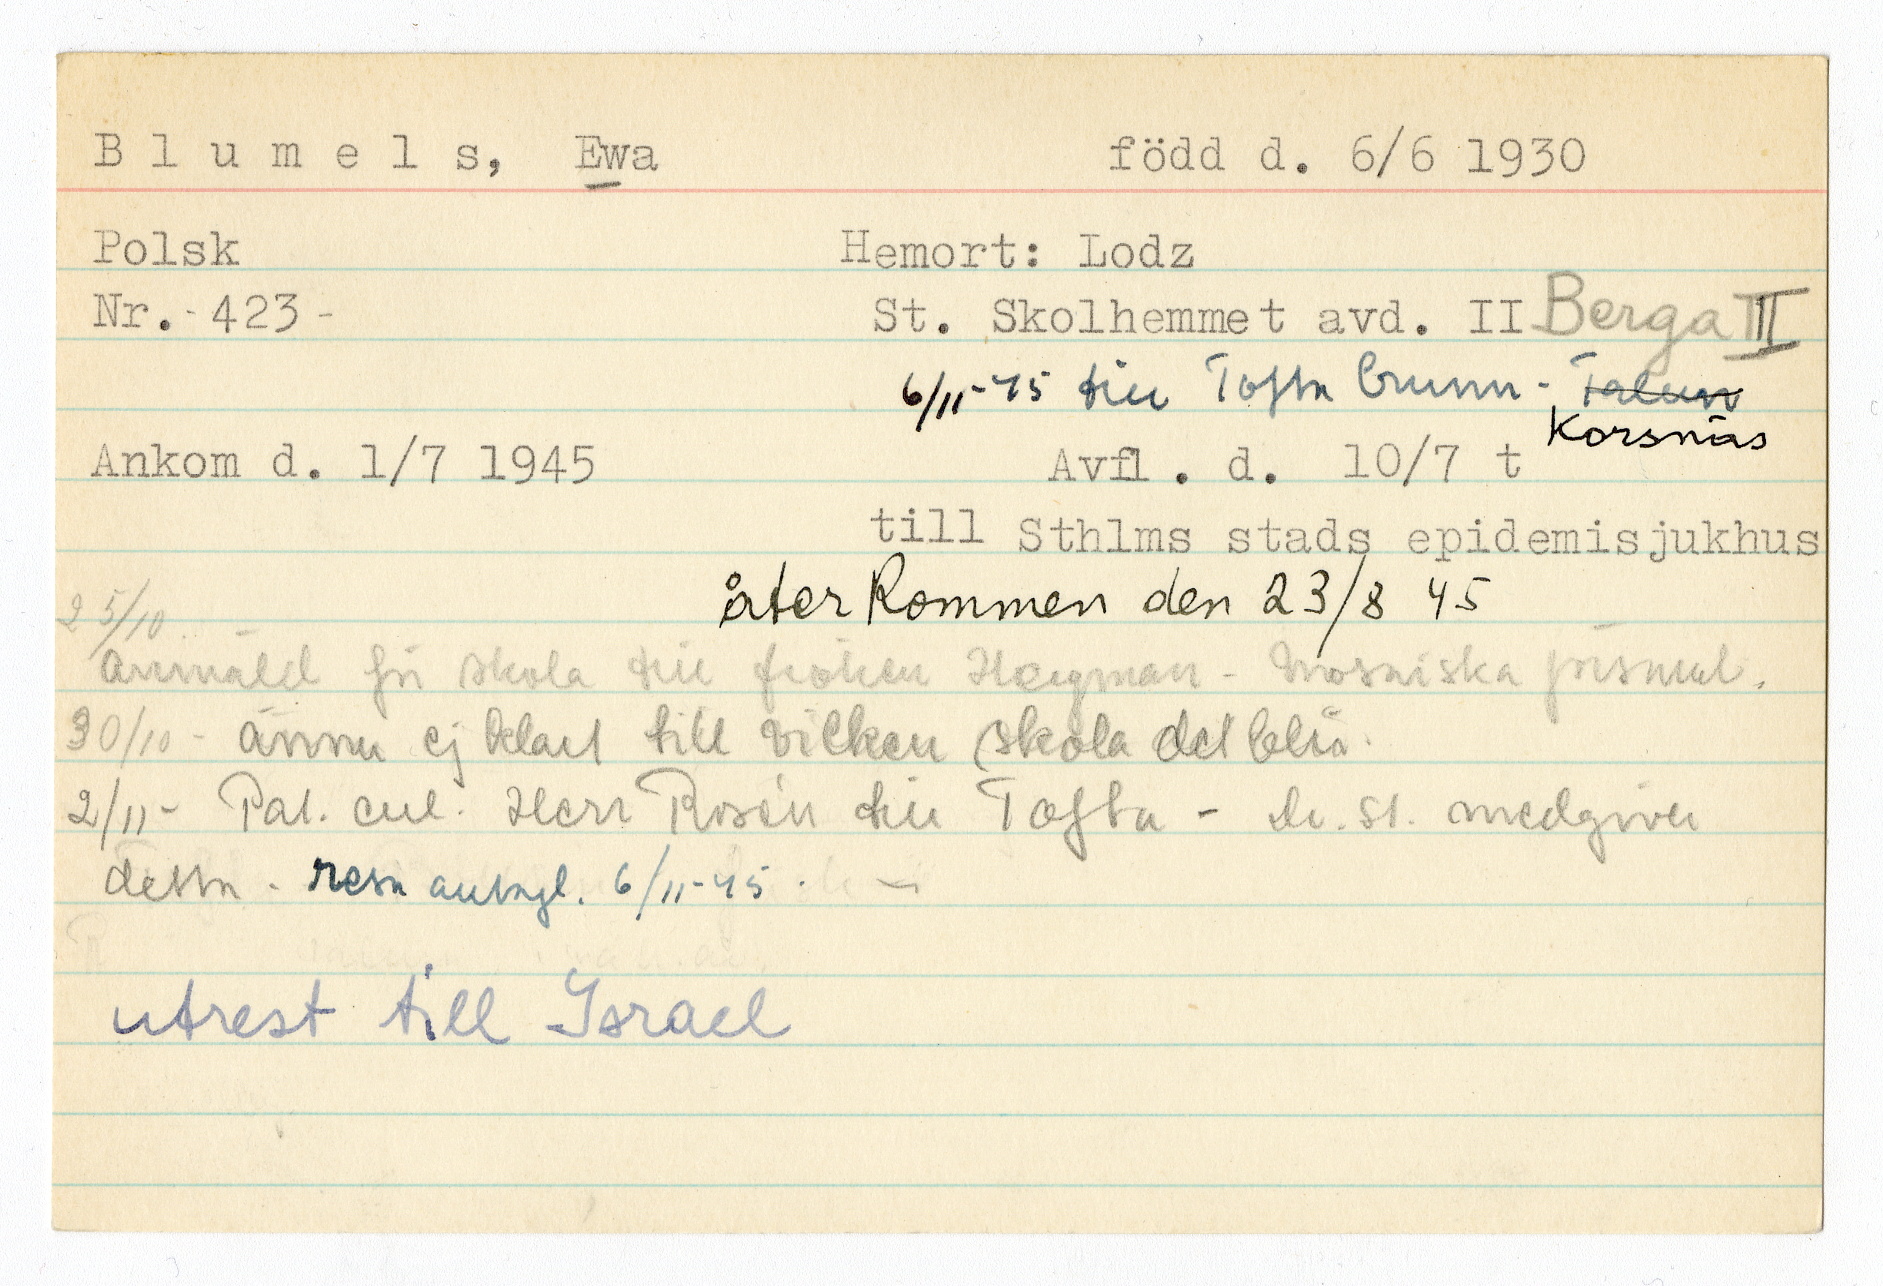 B l u m e l s, Ewa född d. 6/6 1930
Polsk Hemort: Lodz
Nr. - 423 - St. Skolhemmet avd. II Berga III
6/11-45 till Tofta brunn - Falun
Korsnäs
Ankom d. 1/7 1945 Avfl. d. 10/7 t
till Sthlms stads epidemisjukhus
återkommen den 23/8 45
25/10
anmäld för skola till fröken Hagman - Mosaiska
30/10 - ännu ej klart till vilken skola det blir.
2/11 - Pat. enl. Herr Rosén till Tofta - Dr. St. medgiver
detta. resa 6/11-45.
utrest till Israel